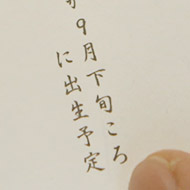 ９月下旬ころ
に出生予定